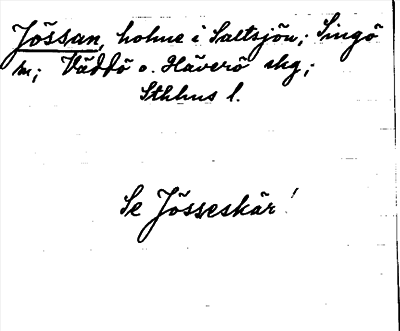 Jössan, holme i Saltsjön; Singö
sn; Väddö o. Häverö skg;
Sthlms l.
Se Jösseskär!